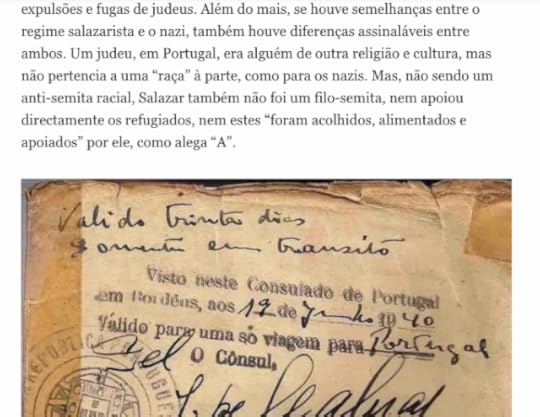 expulsões e fugas de judeus. Além do mais, se houve semelhanças entre o
regime salazarista e o nazi, também houve diferenças assinaláveis entre
ambos. Um judeu, em Portugal, era alguém de outra religião e cultura, mas
não pertencia a uma “raça” à parte, como para os nazis. Mas, não sendo um
anti-semita racial, Salazar também não foi um filo-semita, nem apoiou
directamente os refugiados, nem estes “foram acolhidos, alimentados e
apoiados” por ele, como alega “A”.
Valido trinta dias
somente em transito
Visto neste Consulado de Portugal
em Bordéus, aos 19 de Junho 1940
Válido para uma só viagem para Portugal
O Cônsul,